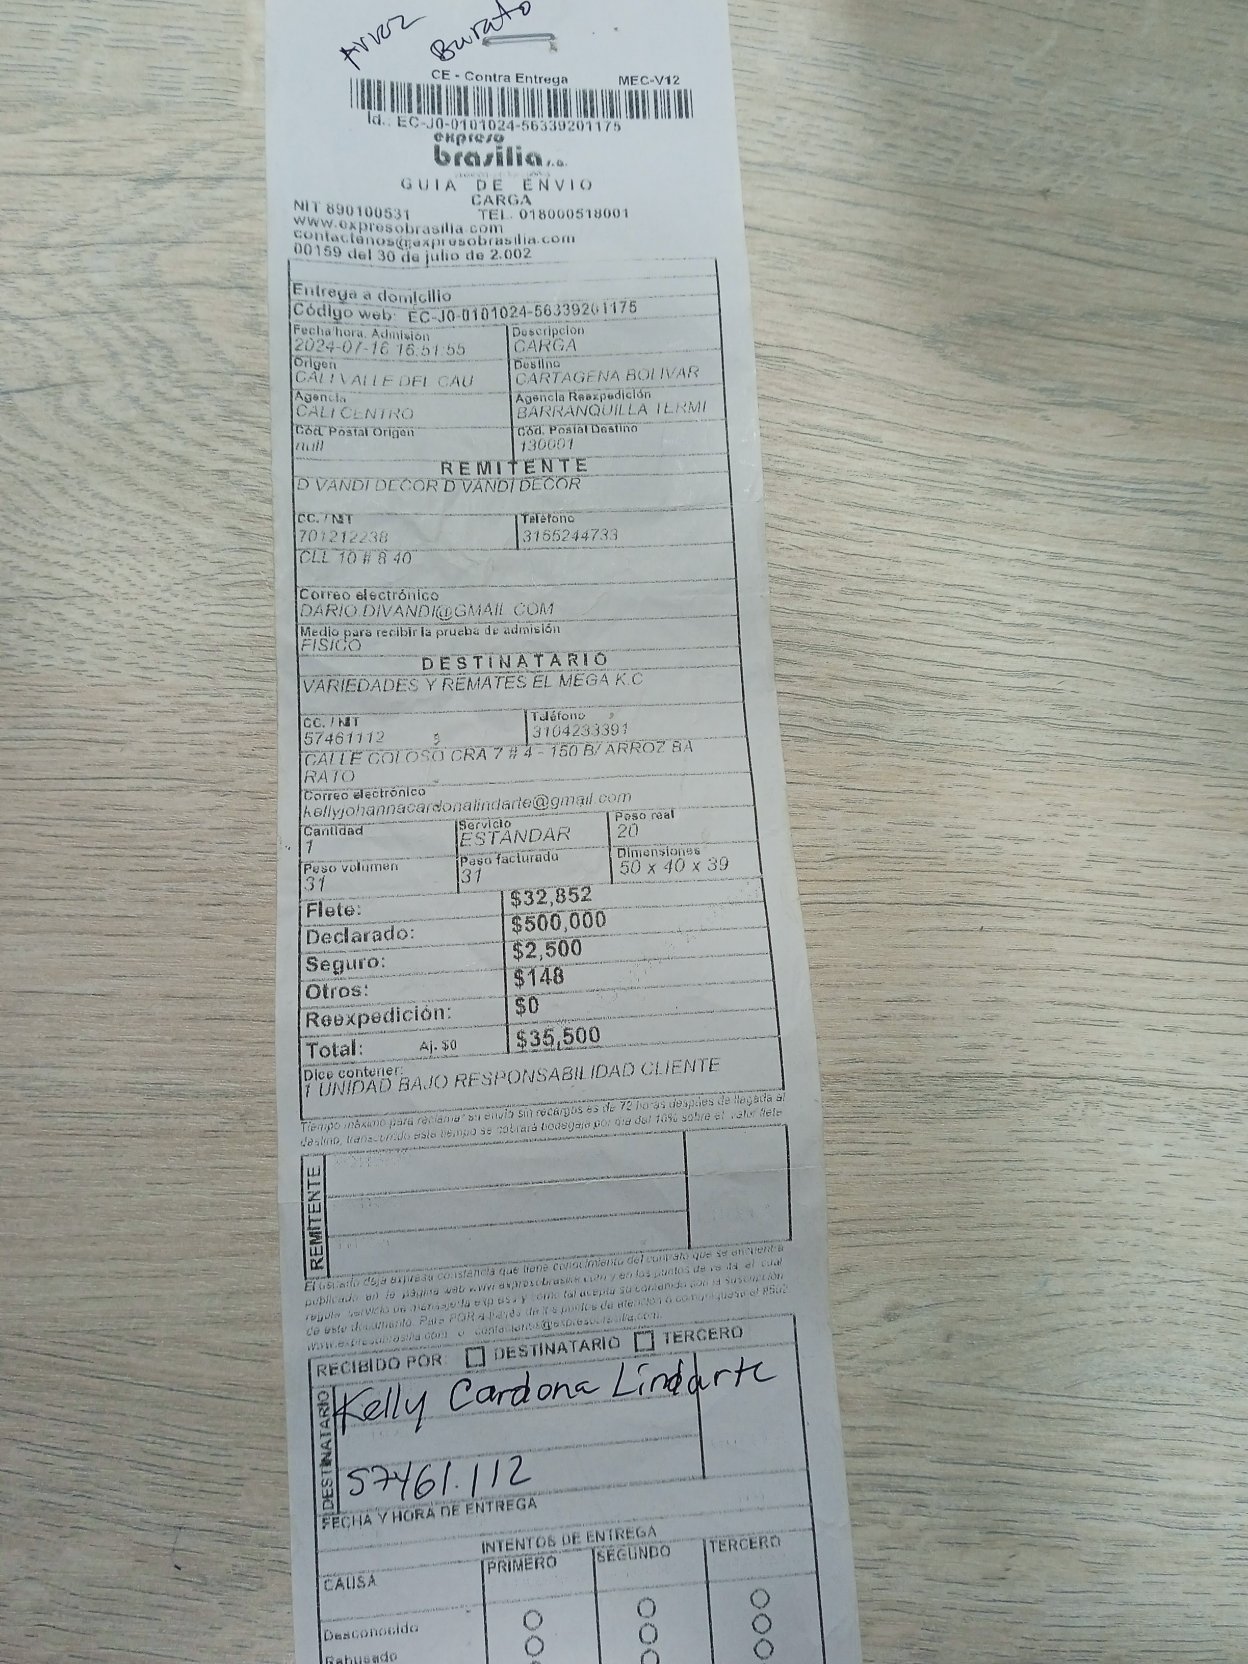 Arroz Barato
CE - Contra Entrega MEC-V12
Id.: EC-J0-0101024-56339201175
expreso
brasilia s.a.
GUIA DE ENVIO
CARGA
NIT 890100531 TEL. 018000518001
www.expresobrasilia.com
contactenos@expresobrasilia.com
00159 del 30 de julio de 2.002
Entrega a domicilio
Código web: EC-J0-0101024-56339201175
Fecha/hora. Admisión Descripcion
2024-07-16 16:51:55 CARGA
Origen Destino
CALI VALLE DEL CAU CARTAGENA BOLIVAR
Agencia Agencia Reexpedición
CALI CENTRO BARRANQUILLA TERMI
Cód. Postal Origen Cód. Postal Destino
null 130001
REMITENTE
D VANDI DECOR D VANDI DECOR
CC. / NIT Teléfono
701212238 3155244733
CLL 10 # 8 40
Correo electrónico
DARIO.DIVANDI@GMAIL.COM
Medio para recibir la prueba de admisión
FISICO
DESTINATARIO
VARIEDADES Y REMATES EL MEGA K.C
CC. / NIT Teléfono
57461112 3104233391
CALLE COLOSO CRA 7 # 4 - 150 B/ ARROZ BA
RATO
Correo electrónico
kellyjohannacardonalindarte@gmail.com
Cantidad Servicio Peso real
1 ESTANDAR 20
Peso volumen Peso facturado Dimensiones
31 31 50 x 40 x 39
Flete: $32,852
Declarado: $500,000
Seguro: $2,500
Otros: $148
Reexpedición: $0
Total: Aj. $0 $35,500
Dice contener:
1 UNIDAD BAJO RESPONSABILIDAD CLIENTE
Tiempo máximo para reclamar su envío sin recargos es de 72 horas después de llegada al
destino, transcurrido este tiempo se cobrará bodegaje por día del 10% sobre el valor flete
REMITENTE
El usuario deja expresa constancia que tiene conocimiento del contrato que se encuentra
publicado en la página web www.expresobrasilia.com y en los puntos de venta, el cual
regula servicio de mensajería expresa y como tal acepta su contenido con la suscripción
de este documento. Para PQR a través de los puntos de atención o comuníquese al
www.expresobrasilia.com o contactenos@expresobrasilia.com
RECIBIDO POR: DESTINATARIO TERCERO
DESTINATARIO
Kelly Cardona Lindarte
57461.112
FECHA Y HORA DE ENTREGA
INTENTOS DE ENTREGA
CAUSA PRIMERO SEGUNDO TERCERO
Desconocido
Rehusado